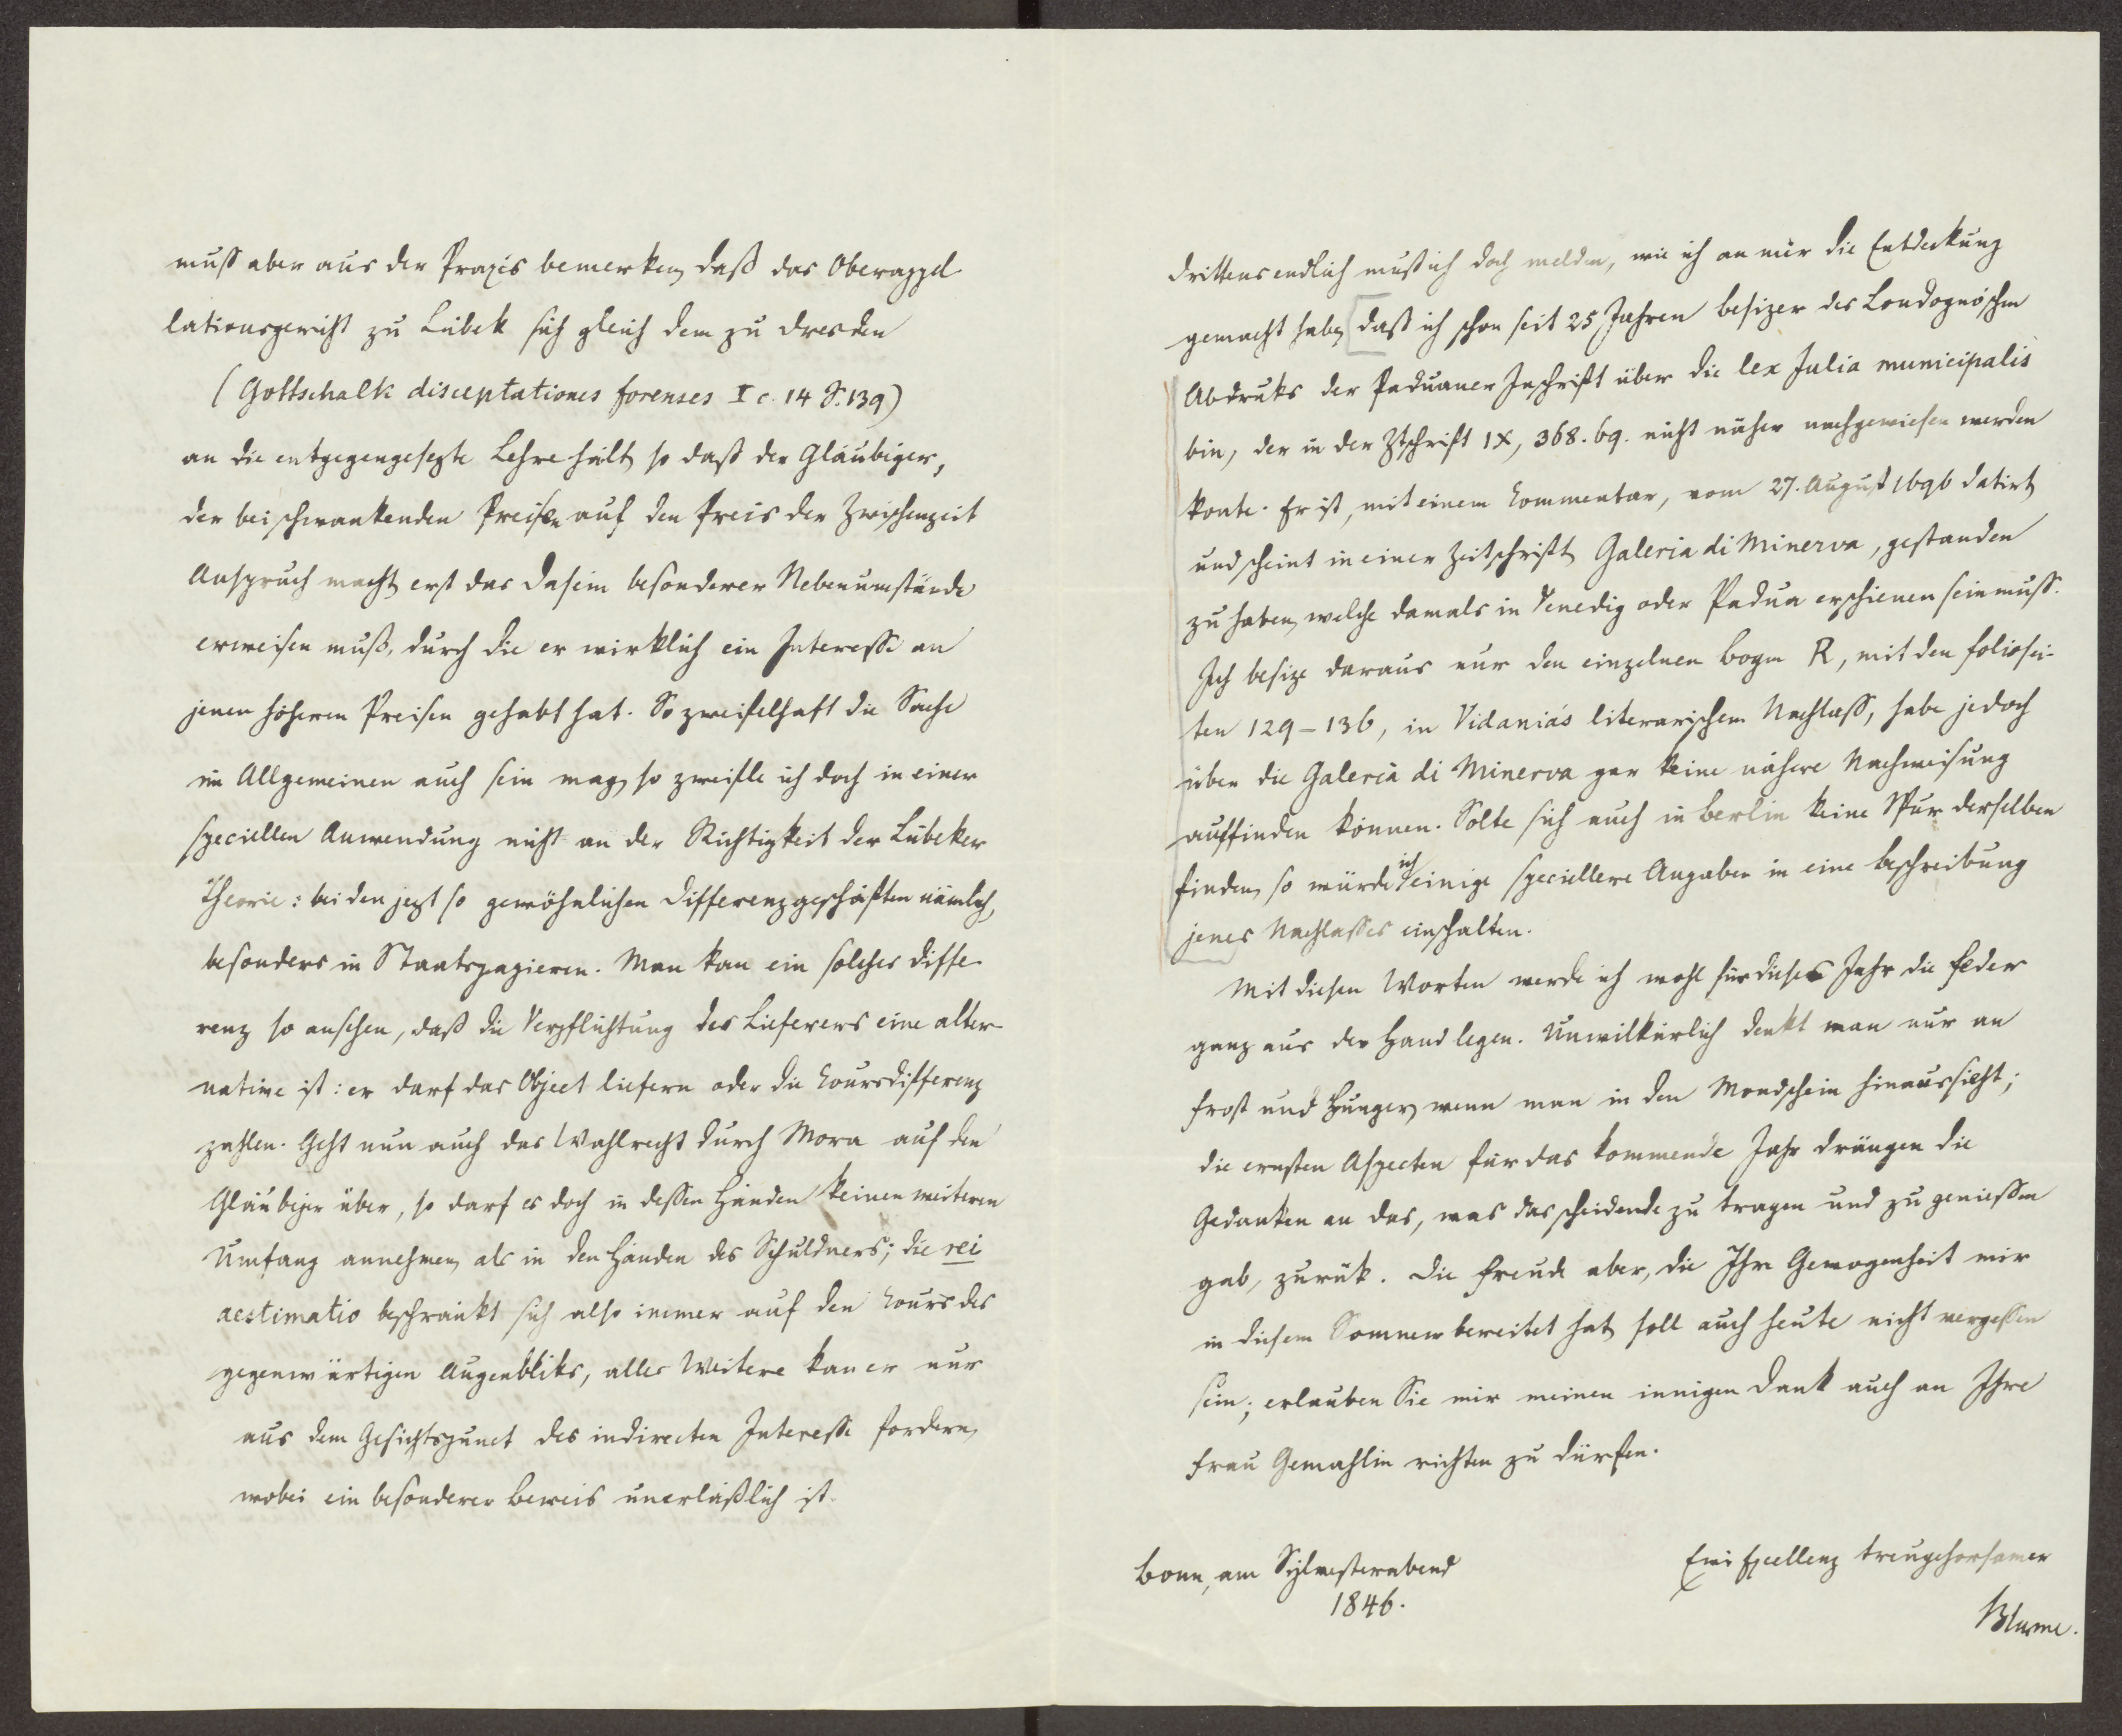 muss aber aus der Praxis bemerken, daß das Oberappel-
lationsgericht zu Lübek sich gleich dem zu Dresden
(Gottschalk disceptationes forenses I c. 14 S. 139)
an die entgegengesezte Lehre hält, so daß der Gläubiger,
der bei schwankenden Preisen auf den Preis der Zwischenzeit
Anspruch macht, erst das Dasein besonderer Nebenumstände
erweisen muß, durch die er wirklich ein Interesse an
jenen höheren Preisen gehabt hat. So zweifelhaft die Sache
im Allgemeinen auch sein mag, so zweifle ich doch in einer
speciellen Anwendung nicht an der Richtigkeit der Lübeker
Theorie: bei den jezt so gewöhnlichen Differenzgeschäften nämlich,
besonders in Staatspapieren. Man kan ein solches Diffe-
renz so ansehen, daß die Verpflichtung des Lieferers eine alter-
native ist: er darf das Object liefern oder die Coursdifferenz
zahlen. Geht nun auch das Wahlrecht durch Mora auf den
Gläubiger über, so darf es doch in dessen Händen keinen weiteren
Umfang annehmen, als in den Händen des Schuldners; die rei
aestimatio beschränkt sich also immer auf den Cours des
gegenwärtigen Augenbliks, alles Weitere kan er nur
aus dem Gesichtspunct des indirecten Interesse fordern,
wobei ein besonderer Beweis unerläßlich ist.
Drittens endlich muß ich doch melden, wie ich an mir die Entdeckung
gemacht habe, daß ich schon seit 25 Jahren Besizer des
Abdruks der Paduaner Inschrift über die lex Julia municipalis
bin, der in der Ztschrift IX, 368. 69. nicht näher nachgewiesen werden
konte. Er ist, mit einem Commentar, vom 27. August 1696 datirt,
und scheint in einer Zeitschrift, Galeria di Minerva, gestanden
zu haben, welche damals in Venedig oder Padua erschienen sein muss.
Ich besize daraus nur den einzelnen Bogen R, mit den Foliosei-
ten 129–136, in Vidania's literarischem Nachlass, habe jedoch
über die Galeria di Minerva gar keine nähere Nachweisung
auffinden können. Solte sich auch in Berlin keine Spur derselben
finden, so würde ich einige speciellere Angaben in eine Beschreibung
jenes Nachlasses einschalten.
Mit diesen Worten werde ich wohl für dieses Jahr die Feder
ganz aus der Hand legen. Unwilkürlich denkt man nur an
Frost und Hunger, wenn man in den Mondschein hinaussieht;
die ernsten Aspecten für das kommende Jahr drängen die
Gedanken an das, was das scheidende zu tragen und zu geniessen
gab, zurük. Die Freude aber, die Ihre Gewogenheit mir
in diesem Sommer bereitet hat, soll auch heute nicht vergessen
sein; erlauben Sie mir meinen innigen Dank auch an Ihre
Frau Gemahlin richten zu dürfen.
Bonn, am Sylvesterabend
1846.
Euer Excellenz treugehorsamer
Blume.